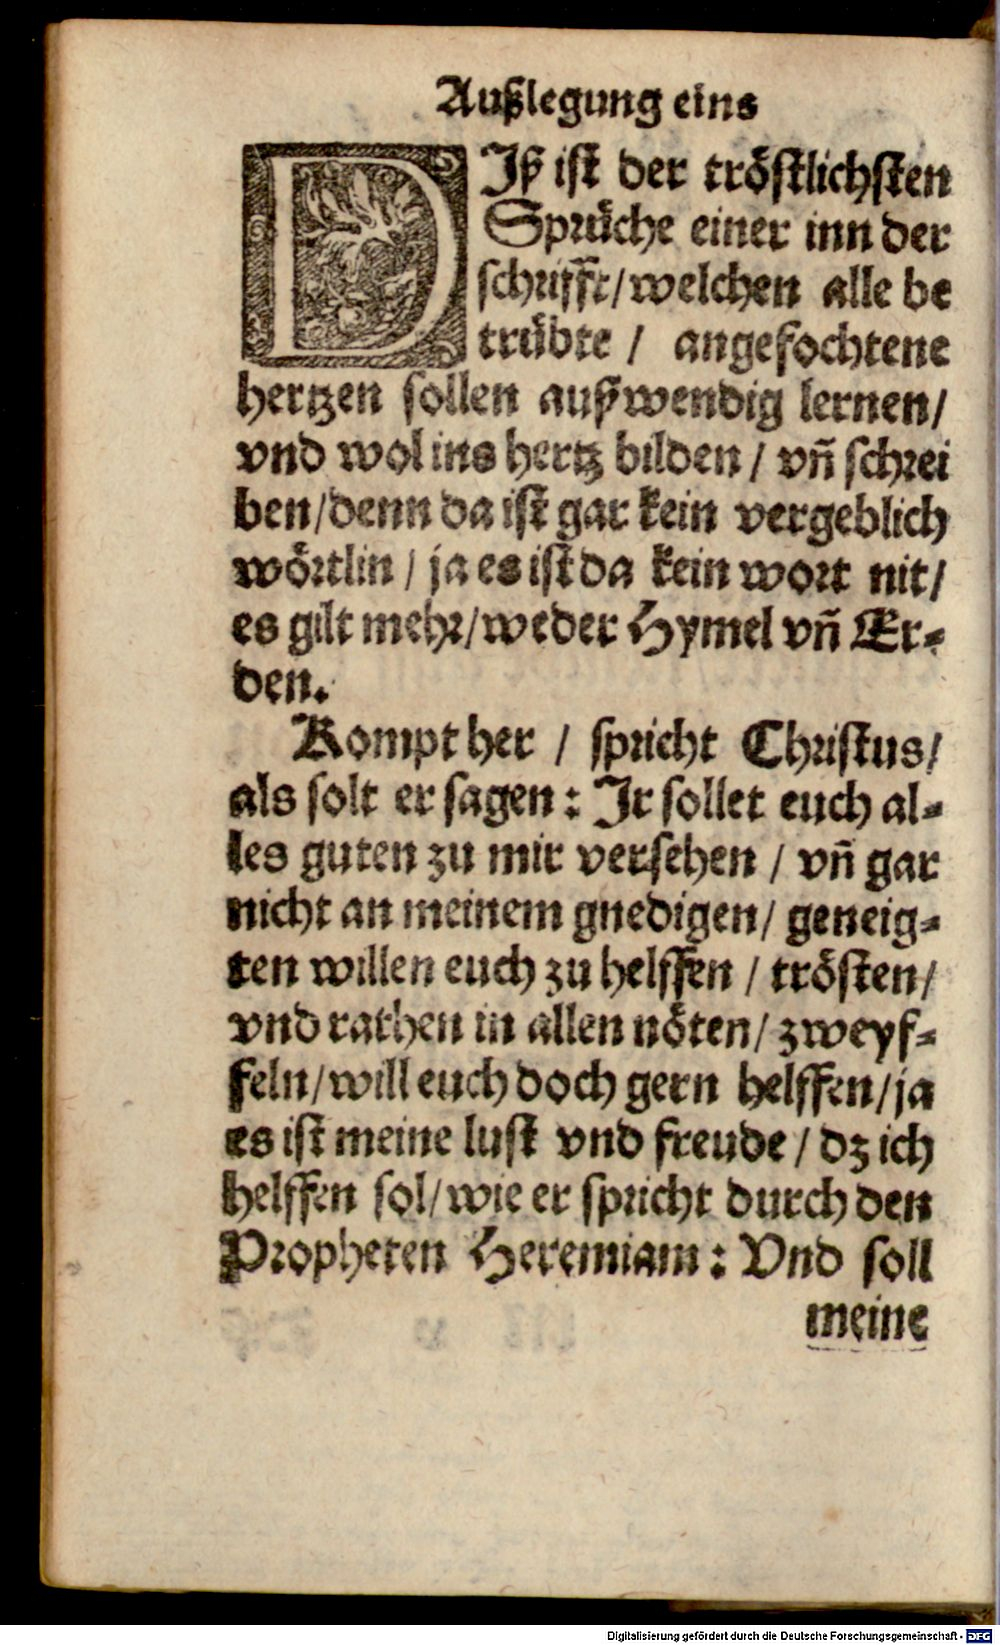 Außlegung eins
DJß ist der tröstlichsten
Sprüche einer inn der
schrifft/welchen alle be
trübte / angefochtene
hertzen sollen außwendig lernen/
vnd wol ins hertz bilden / vñ schrei
ben/denn da ist gar kein vergeblich
wörtlin / ja es ist da kein wort nit/
es gilt mehr/weder Hymel vñ Er-
den.
Kompt her / spricht Christus/
als solt er sagen: Jr sollet euch al-
les guten zu mir versehen / vñ gar
nicht an meinem gnedigen/ geneig-
ten willen euch zu helffen / trösten/
vnd rathen in allen nöten/ zweyf-
feln/will euch doch gern helffen/ja
es ist meine lust vnd freude / dz ich
helffen sol/wie er spricht durch den
Propheten Heremiam: Vnd soll
meine
Digitalisierung gefördert durch die Deutsche Forschungsgemeinschaft - DFG